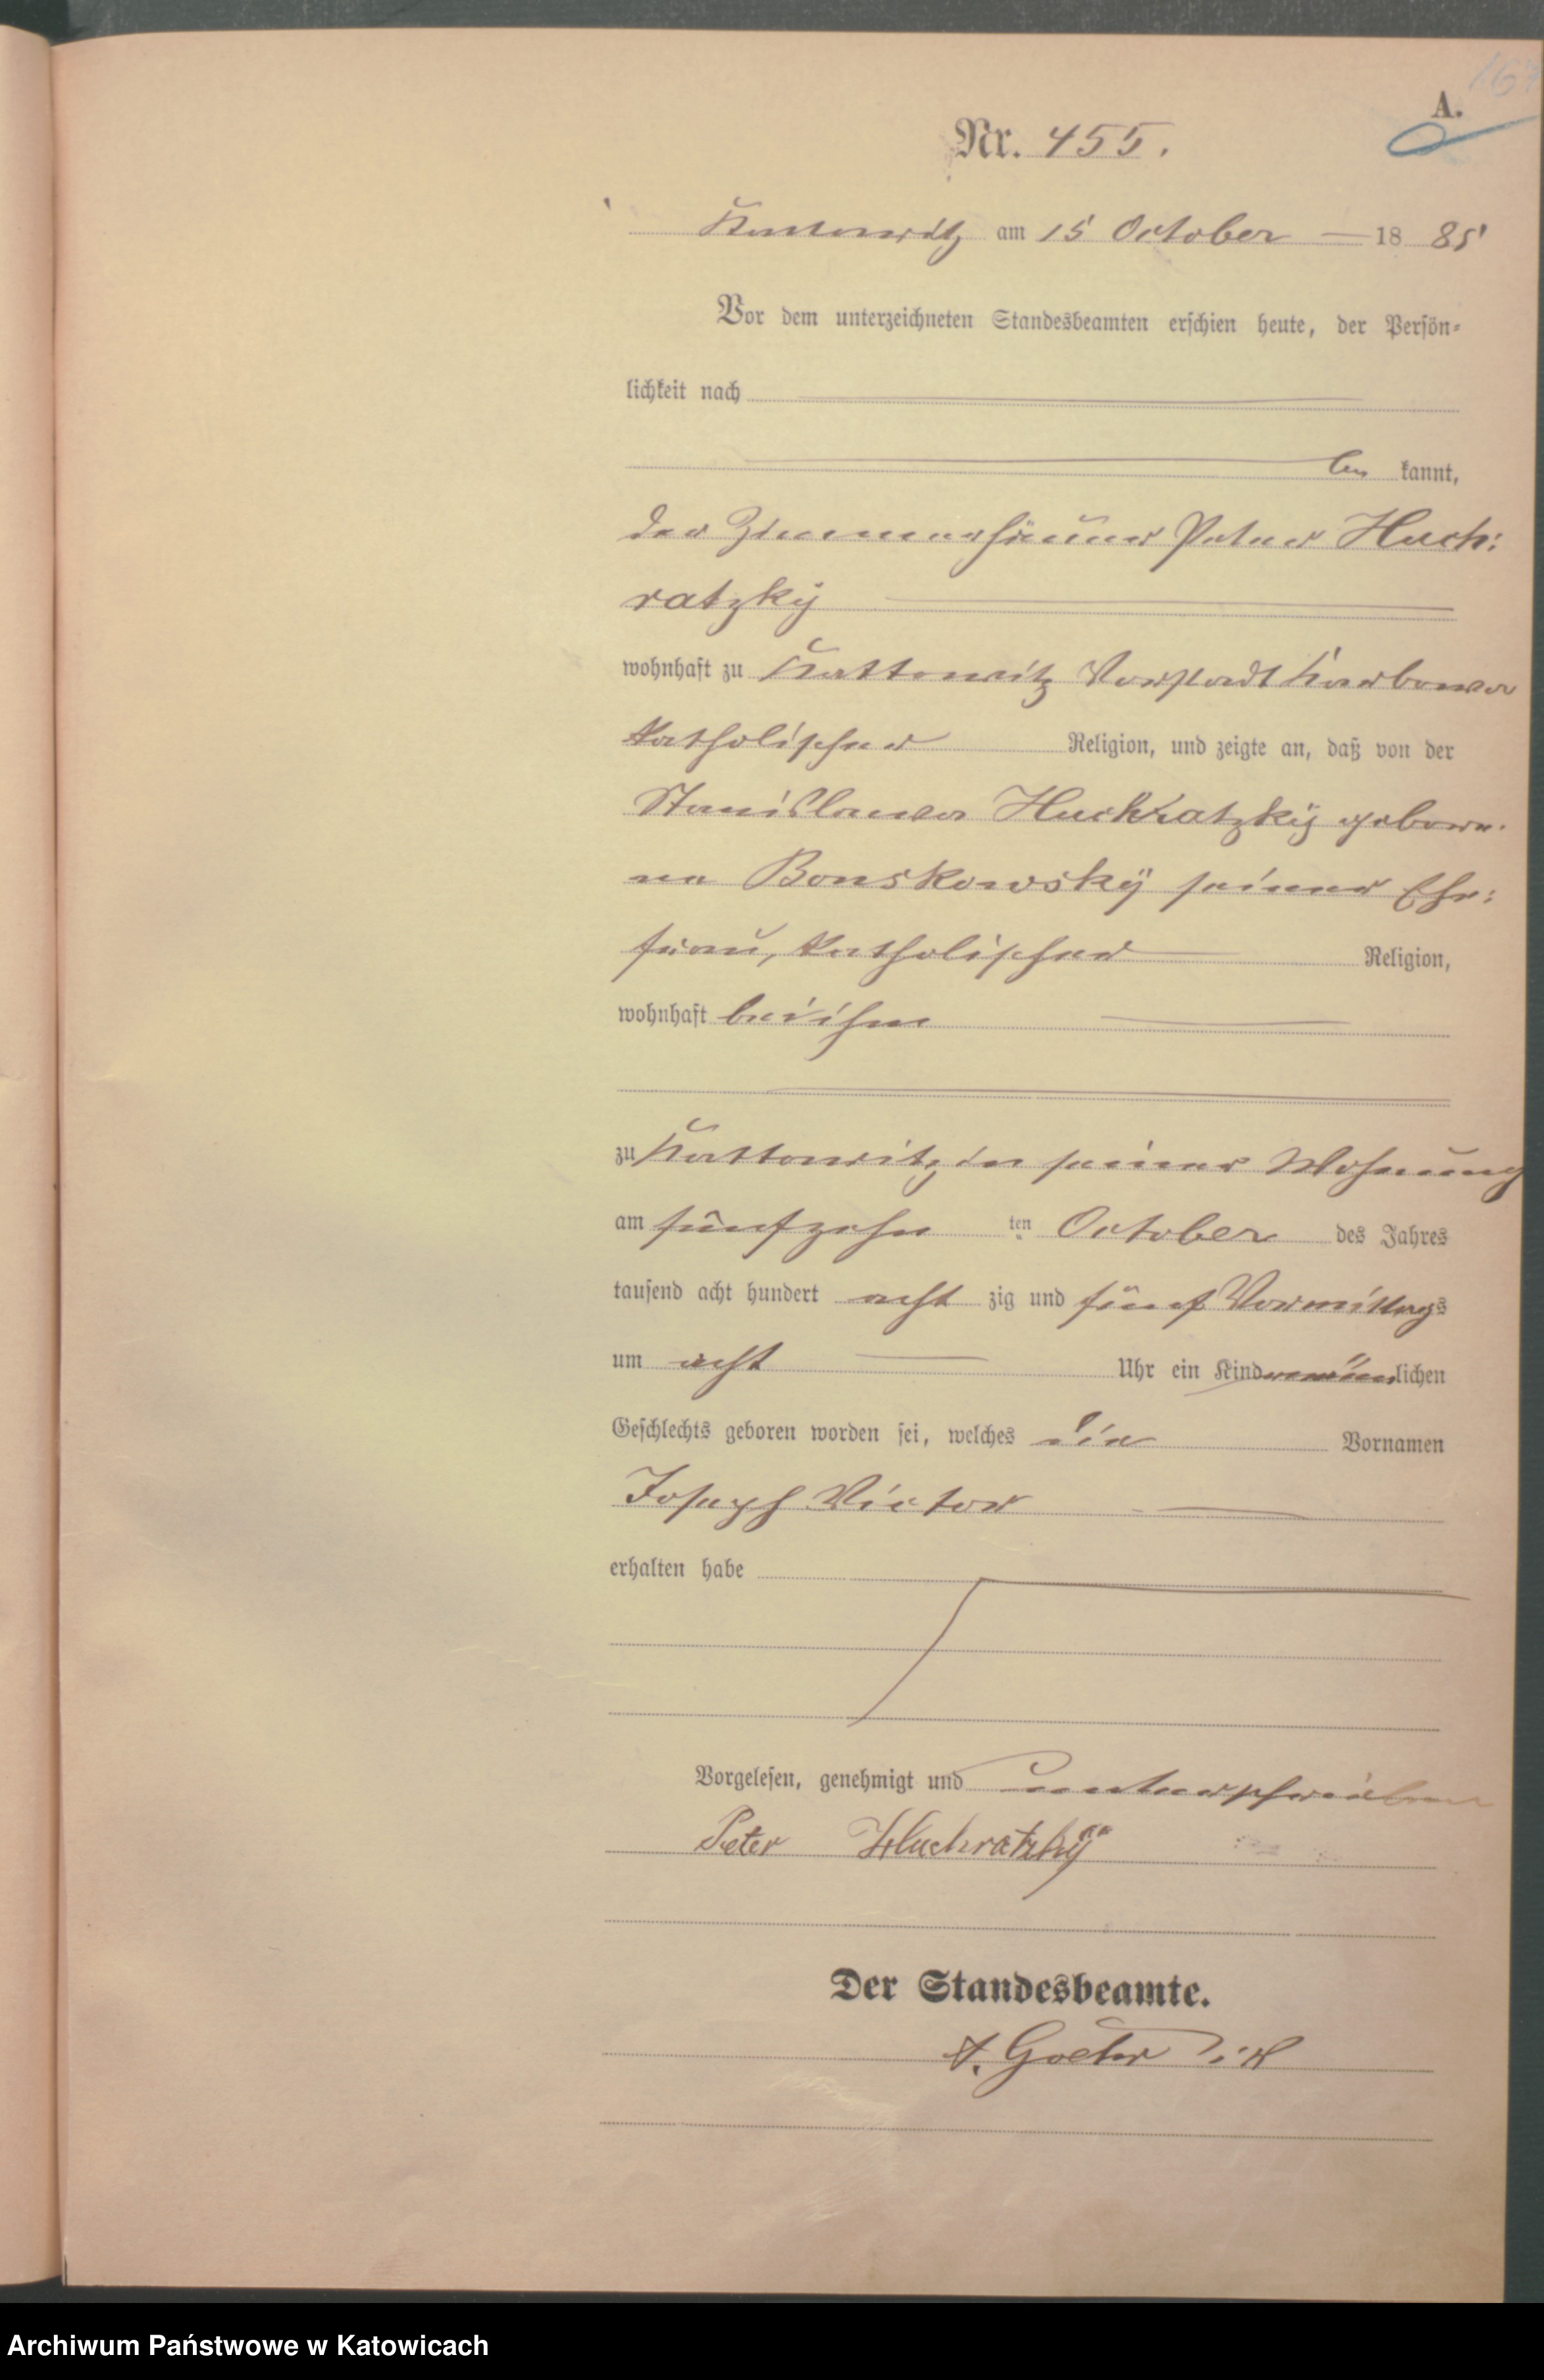 167
A.
Nr. 455.
Kattowitz am 15 October 1885
Vor dem unterzeichneten Standesbeamten erschien heute, der Persön-
lichkeit nach
be kannt,
der Zimmerhäuer Peter Huch:
ratzky
wohnhaft zu Kattowitz Vorstadt Karbowa
katholischer Religion, und zeigte an, daß von der
Stanislawa Huchratzky gebore-
ne Bonskowsky seiner Ehe:
frau, katholischer Religion,
wohnhaft bei ihm
zu Kattowitz in seiner Wohnung
am fünfzehn ten October des Jahres
tausend acht hundert acht zig und fünf Vormittags
um acht Uhr ein Kind männlichen
Geschlechts geboren worden sei, welches die Vornamen
Joseph Victor
erhalten habe
Vorgelesen, genehmigt und unterschrieben
Peter Huchratzky
Der Standesbeamte.
Archiwum Państwowe w Katowicach